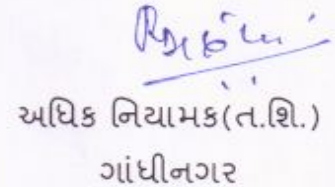 અધિક નિયામક(ત.શિ.)
ગાંધીનગર